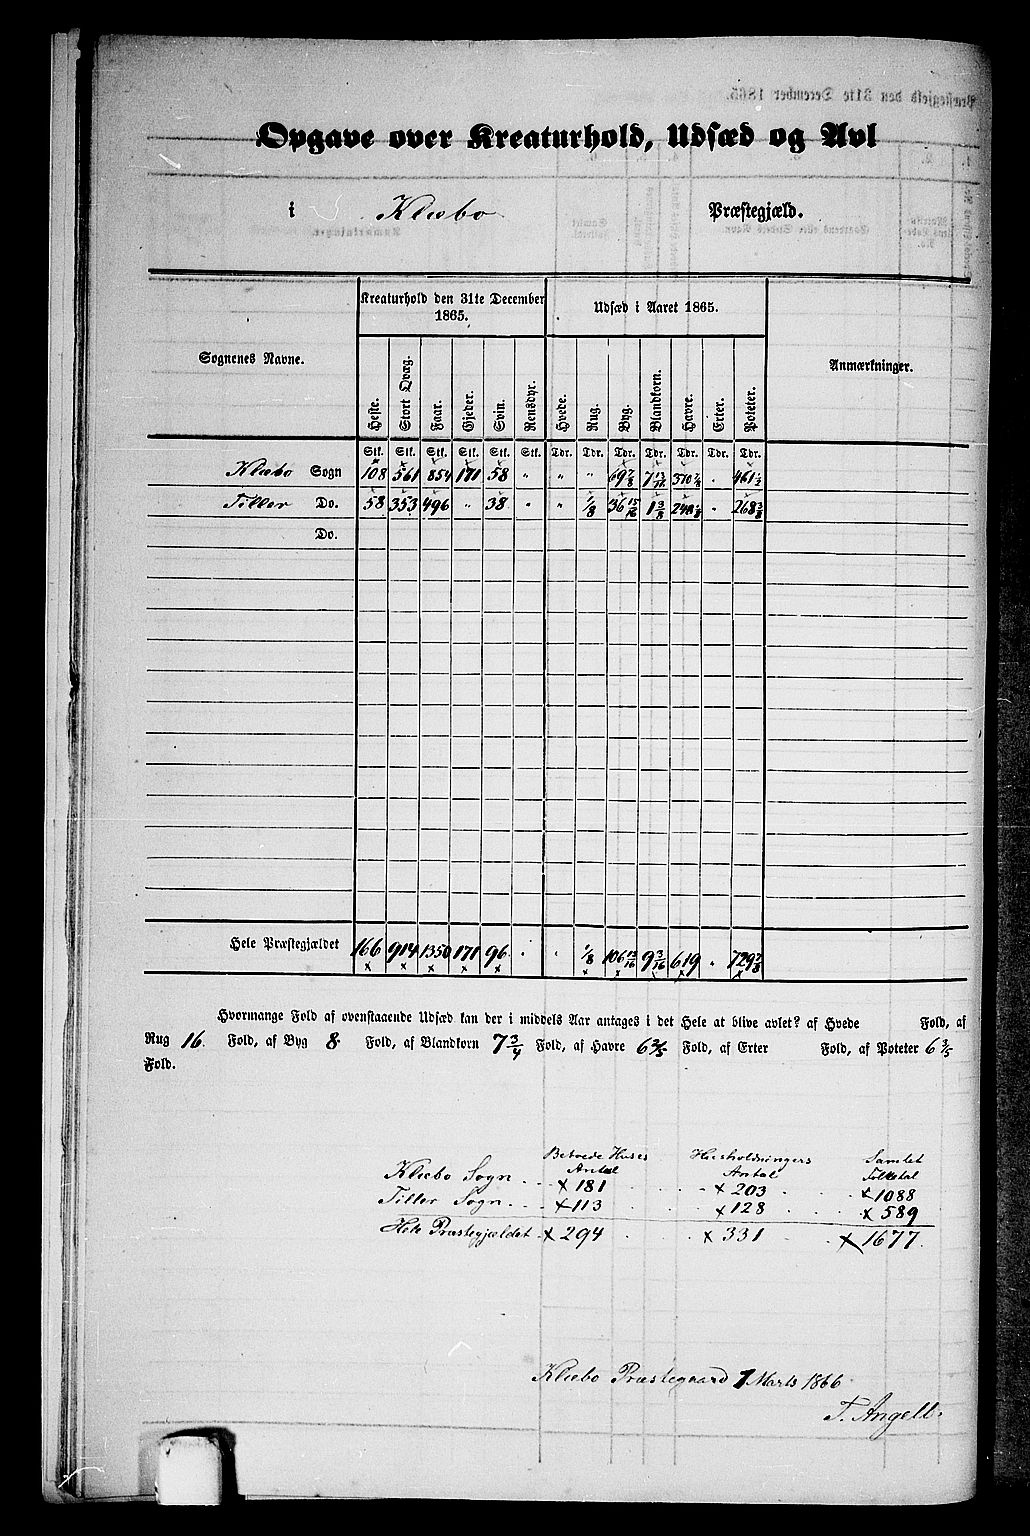 Opgave over Kreaturhold, Udsæd og Avl
i Klæbo Præstegjæld.
Sognenes Navne. Kreaturhold den 31te December 1865. Udsæd i Aaret 1865. Anmærkninger.
Heste. Stort Qvæg. Faar. Gjeder. Svin. Rensdyr. Hvede. Rug. Byg. Blandkorn. Havre. Erter. Poteter.
Stk. Stk. Stk. Stk. Stk. Stk. Tdr. Tdr. Tdr. Tdr. Tdr. Tdr. Tdr.
Klæbo Sogn 108 561 854 171 58 " " " 69 7/8 7 13/16 370 7/8 " 461 1/2
Tiller Do. 58 353 496 " 38 " " 1/8 36 15/16 1 3/8 248 1/8 " 268 3/8
Do.
Hele Præstegjældet 166 914 1350 171 96 " " 1/8 106 13/16 9 3/16 619 " 729 7/8
Hvormange Fold af ovenstaaende Udsæd kan der i middels Aar antages i det Hele at blive avlet? af Hvede Fold, af
Rug 16. Fold, af Byg 8. Fold, af Blandkorn 7 3/4 Fold, af Havre 6 2/5 Fold, af Erter Fold, af Poteter 6 3/5
Fold.
Beboede Huses Antal Husholdningers Antal Samlet Folketal
Klæbo Sogn 181 203 1088
Tiller Sogn 113 128 589
Hele Præstegjældet 294 331 1677
Klæbo Præstegaard 1 Marts 1866
T. Angell.